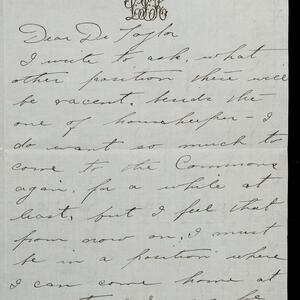 Dear Dr Taylor
I write to ask, what
other position there will
be vacent, beside the
one of housekeeper - I
do want so much to
come to the Commons
again, for a while at
least, but I feel that
from now on, I must
be in a position where
I can come home at